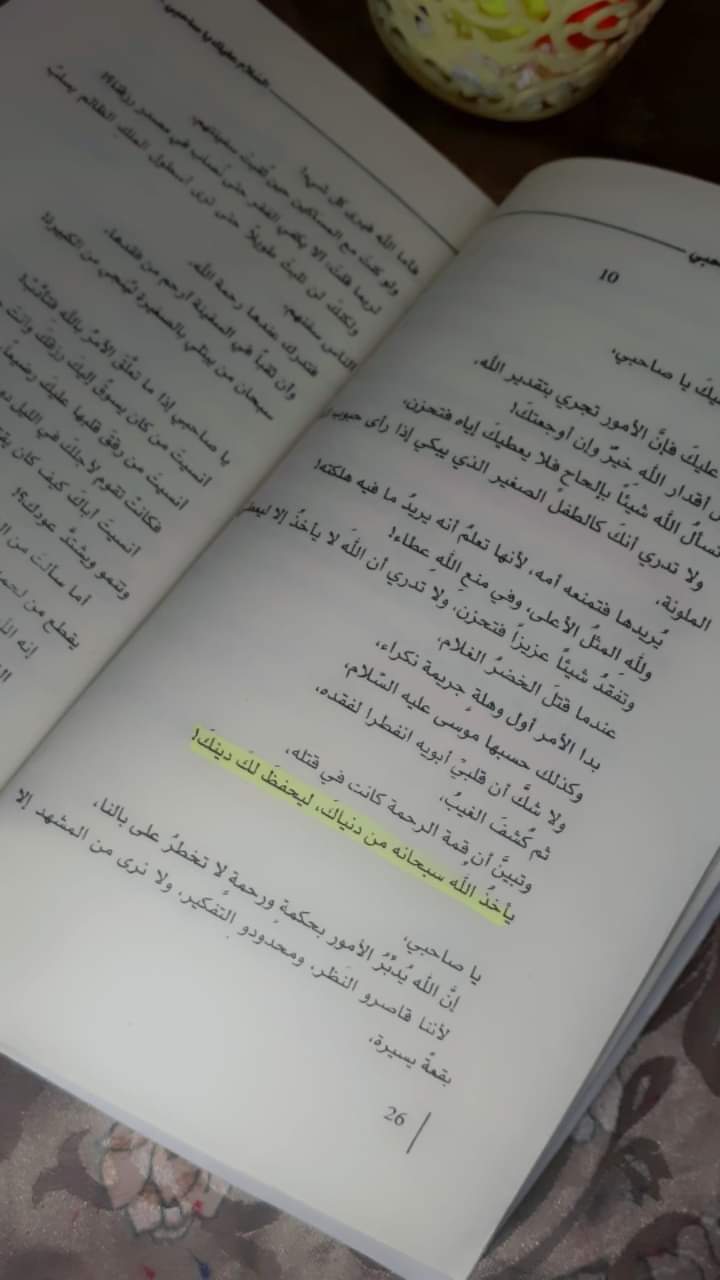 حبي
10
يكَ يا صاحبي،
عليكَ فإنَّ الأمور تجري بتقدير الله،
أقدار الله خيرٌ وإن أوجعتكَ!
تسألُ الله شيئاً بإلحاح فلا يعطيكَ إياه فتحزن،
ولا تدري أنكَ كالطفل الصغير الذي يبكي إذا رأى حبوب
الملونة،
يُريدها فتمنعه أمه، لأنها تعلمُ أنه يريدُ ما فيه هلكته!
ولله المثلُ الأعلى، وفي منعِ اللهِ عطاء!
وتفقدُ شيئاً عزيزاً فتحزن، ولا تدري أن اللهَ لا يأخذُ إلا
عندما قتلَ الخضرُ الغلام،
بدا الأمر أول وهلةٍ جريمة نكراء،
وكذلك حسبها موسى عليه السَّلام،
ولا شكَّ أن قلبيْ أبويه انفطرا لفقده،
ثم كُشفَ الغيبُ،
وتبينَّ أن قمة الرحمة كانت في قتله،
يأخذُ اللهُ سبحانه من دنياكَ، ليحفظَ لكَ دينكَ!
يا صاحبي،
إنَّ الله يُدبّرُ الأمور بحكمةٍ ورحمةٍ لا تخطرُ على بالنا،
لأننا قاصرو النَظر، ومحدودو التفكير، ولا نرى من المشهد إلا
بقعةً يسيرة،
26
السلام عليك يا صاحبي
لربما قلتَ: ألا يكفي الفقر حتى نُصاب في مصدر رزقنا؟!
ولكنكَ لن تلبثَ طويلاً حتى ترى أسطول الملك الظالم يسلبُ
الناس سفنهم،
فتدرك عندها رحمة الله،
وأن ثقباً في السفينة أرحم من فقدها،
سبحان من يبتلي بالصغيرة ليُنجي من الكبيرة!
يا صاحبي إذا ما تعلَّق الأمرُ بالله فتأدَّبْ!
أنسيتَ من كان يسوقُ إليكَ رزقكَ وأنتَ
أنسيتَ من رقق قلبها عليكَ رضيعاً،
فكانتْ تقوم لأجلكَ في الليل
أنسيتَ أباكَ كيف كان
وتنمو ويشتدُّ عودك؟!
أما سألتَ من
يقطع من
إنه